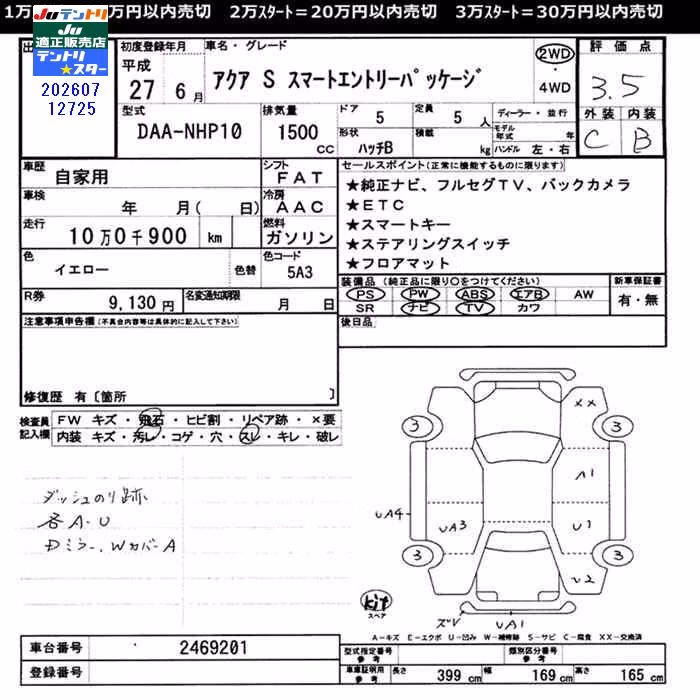 1万 万円以内売切 2万ｽﾀｰﾄ＝20万円以内売切 3万ｽﾀｰﾄ＝30万円以内売切
Juテントリ
Ju
適正販売店
テントリ
★スター
202607
12725
初度登録年月
平成
27 6月
車名・グレード
アクア S スマートエントリーパッケージ
2WD
・
4WD
評価点
3.5
外装 内装
C B
型式
DAA-NHP10
排気量
1500 cc
ドア
5
定員
5 人
形状
ハッチB
積載
kg
ディーラー・並行
モデル年式 年
ハンドル 左・右
車歴
自家用
シフト
FAT
車検
年 月( 日)
冷房
AAC
走行
10万0千900 km
燃料
ガソリン
色
イエロー
色替
色コード
5A3
R券
9,130 円
名変通知期限
月 日
セールスポイント(正常に機能するものに限ります)
★純正ナビ、フルセグTV、バックカメラ
★ETC
★スマートキー
★ステアリングスイッチ
★フロアマット
装備品(純正品に限り○をつけてください)
PS PW ABS エアB AW
SR ナビ TV カワ
新車保証書
有・無
後日品
注意事項申告欄(不具合内容等は具体的に記入して下さい)
修復歴 有〔箇所 〕
検査員
記入欄
FW キズ・飛石・ヒビ割・リペア跡・×要
内装 キズ・汚レ・コゲ・穴・スレ・キレ・破レ
ダッシュのり跡
各A・U
Dミラー、WカバーA
XX
3
3
A1
UA4
UA3
U1
3
3
U2
kit
スペア
ズV
UA1
A－キズ E－エクボ U－凹み W－補修跡 S－サビ C－腐食 XX－交換済
車台番号
2469201
登録番号
型式指定番号
参考
類別区分番号
参考
車庫証明用
参考
長さ 399 cm
幅 169 cm
高さ 165 cm